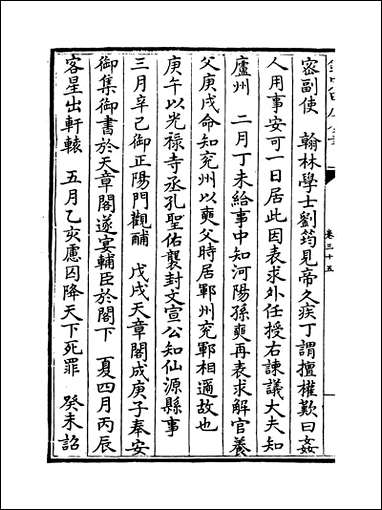 密副使　翰林學士劉筠見帝久疾丁謂擅權歎曰姦
人用事安可一日居此因表求外任授右諫議大夫知
廬州　二月丁未給事中知河陽孫奭再表求解官養
父庚戌命知兖州以奭父時居鄆州兖鄆相邇故也
庚午以光禄寺丞孔聖佑襲封文宣公知仙源縣事
三月辛已御正陽門觀酺　戊戌天章閣成庚子奉安
御集御書於天章閣遂宴輔臣於閣下　夏四月丙辰
客星出軒轅　五月乙亥慮囚降天下死罪　癸未詔
卷三十五